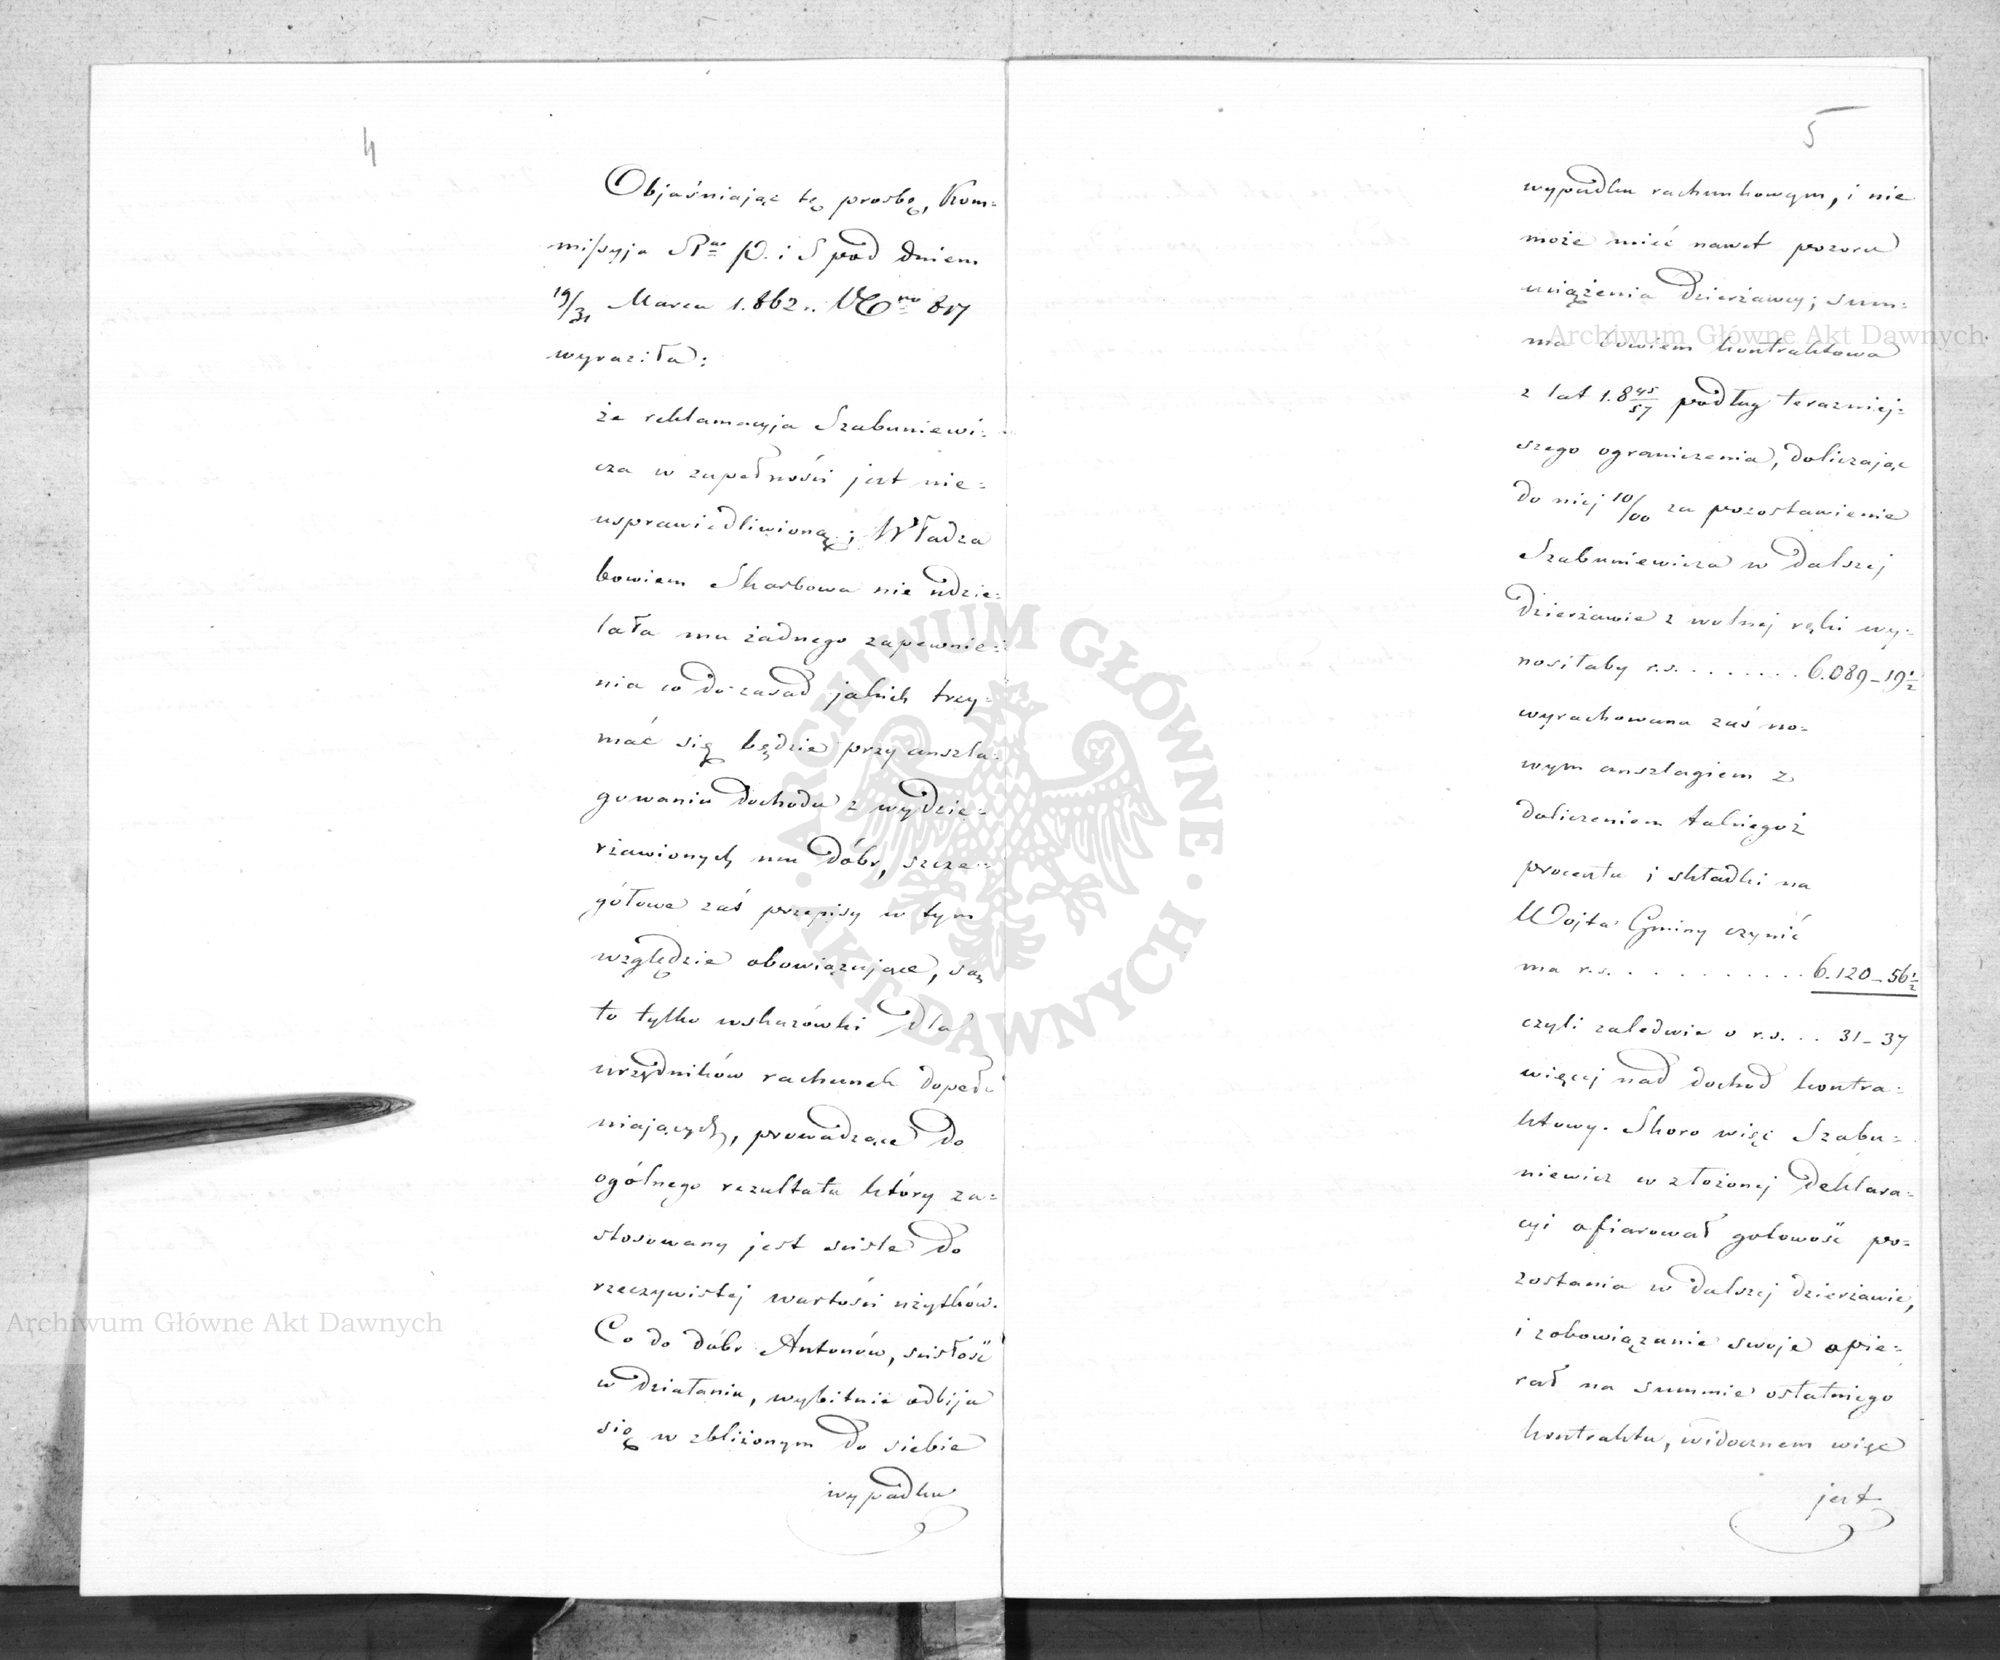 4
Objaśniając tę prośbę, Kom=
missyja R. P. i S pod dniem
19/31 Marca 1.862.. N 817
wyraziła:
że reklamacyja Szabuniewi=
cza w zupełności jest nie=
usprawiedliwioną; Władza
bowiem Skarbowa nie udzie=
lała mu żadnego zapewnie=
nia co do zasad jakich trzy=
mać się będzie przy anszla=
gowaniu dochodu z wydzie=
rżawionych mu dóbr, szcze=
gółowe zaś przepisy w tym
względzie obowiązujące, są
to tylko wskazówki dla
urzędników rachunek dopeł=
niających, prowadzące do
ogólnego rezultatu który za=
stosowany jest ściśle do
rzeczywistej wartości użytków.
Co do dóbr Antonów, ścisłość
w działaniu, wybitnie odbija
się w zbliżonym do siebie
wypadku
5
wypadku rachunkowym, i nie
może mieć nawet pozoru
uciążenia dzierżawcy; sum=
ma bowiem kontraktowa
z lat 1.845/57 podług teraźniej=
szego ograniczenia, doliczając
do niej 10/00 za pozostawienie
Szabuniewicza w dalszej
dzierżawie z wolnej ręki wy=
nosiłaby r.s. . . . . . . . 6.089–19½
wyrachowana zaś no=
wym anszlagiem z
doliczeniem takiegoż
procentu i składki na
Wójta Gminy czynić
ma r.s. . . . . . . . . . . 6.120–56½
czyli zaledwie o r.s. . . 31–37
więcej nad dochód kontra=
ktowy. Skoro więc Szabu=
niewicz w złożonej dekłara=
cyi ofiarował gotowość po=
zostania w dalszej dzierżawie,
i zobowiązanie swoje opie=
rał na summie ostatniego
kontraktu, widocznem więc
jest
Archiwum Główne Akt Dawnych
Archiwum Główne Akt Dawnych
ARCHIWUM GŁÓWNE · AKT DAWNYCH ·